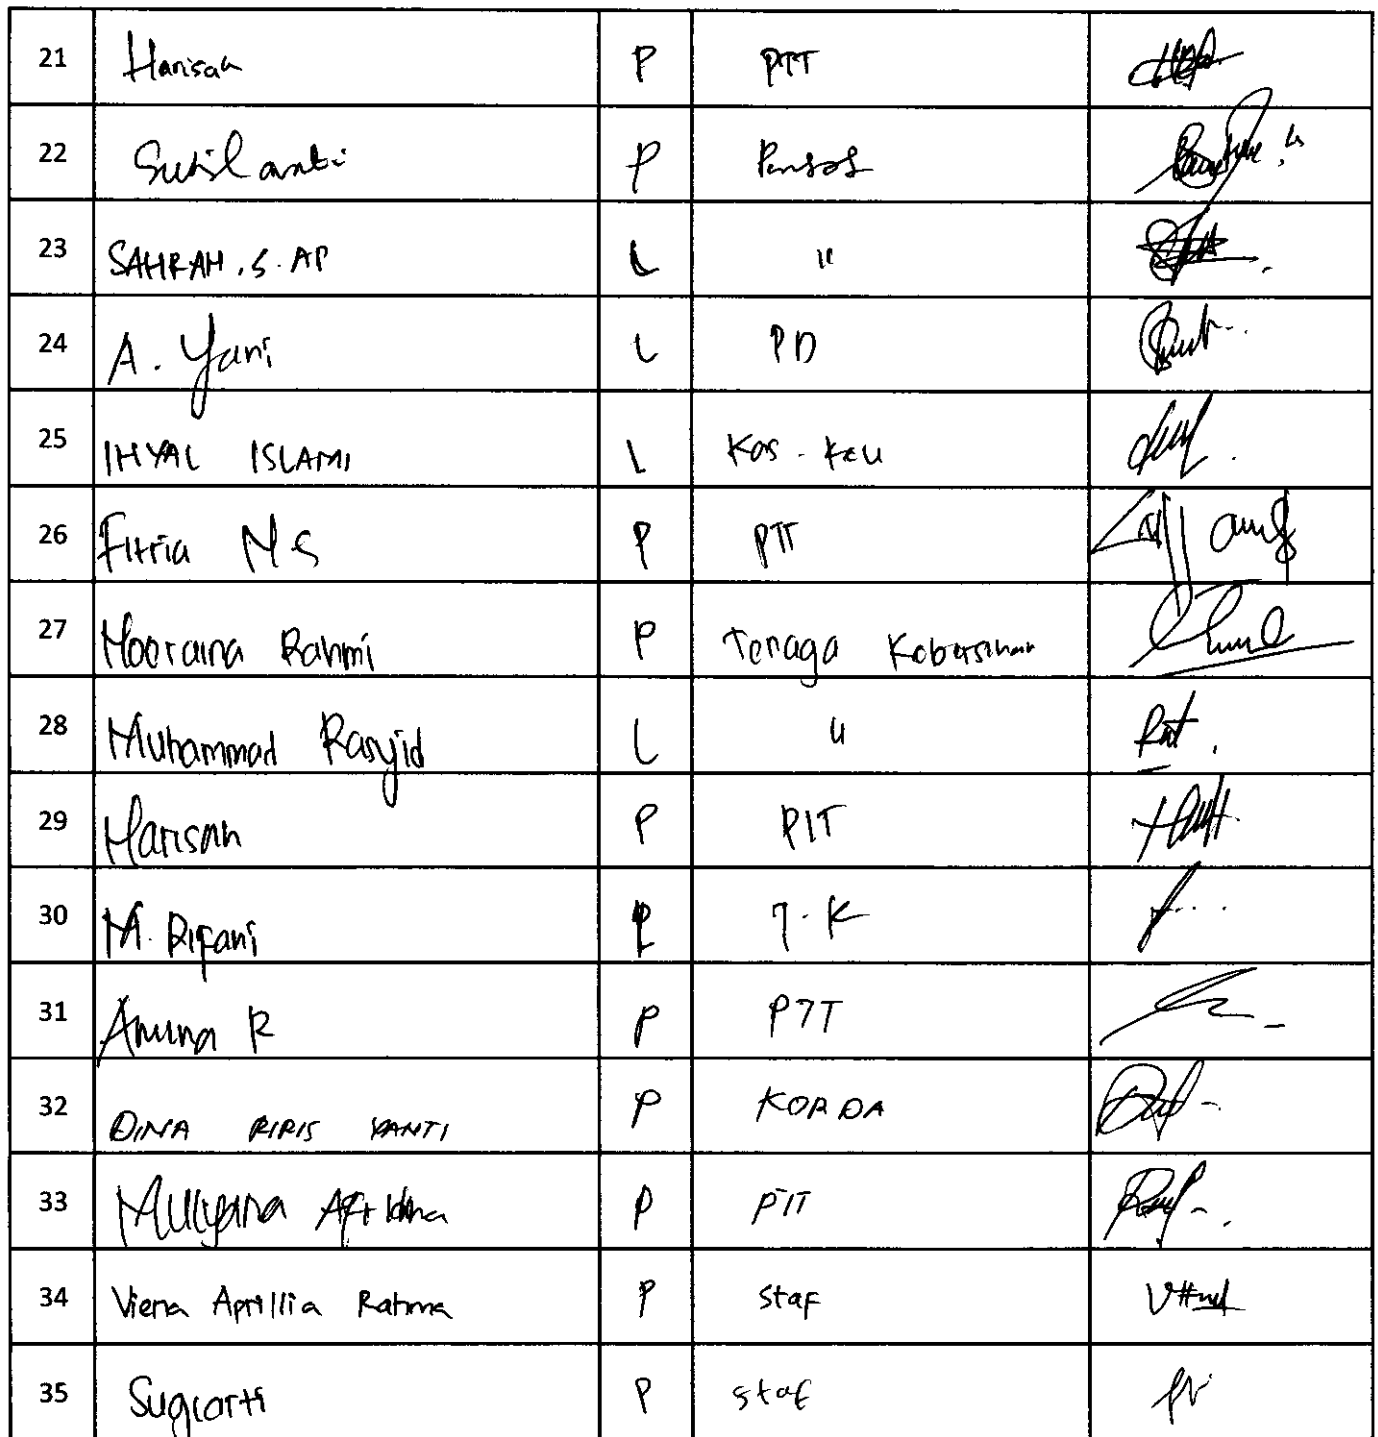 21 Harisah P PTT
22 Susilanti P Pensos
23 SAHRAH . S . AP L "
24 A . Yani L PD
25 IHYAL ISLAMI L Kas . keu
26 Fitria N S P PTT
27 Nooraina Rahmi P Tenaga Kebersihan
28 Muhammad Rasyid L "
29 Harisah P PTT
30 M. Rifani L T . K
31 P PTT
32 DINA RIRIS YANTI P KORDA
33 Mulyana P PTT
34 Viena Aprillia Rahma P staf
35 Sugiarti P staf